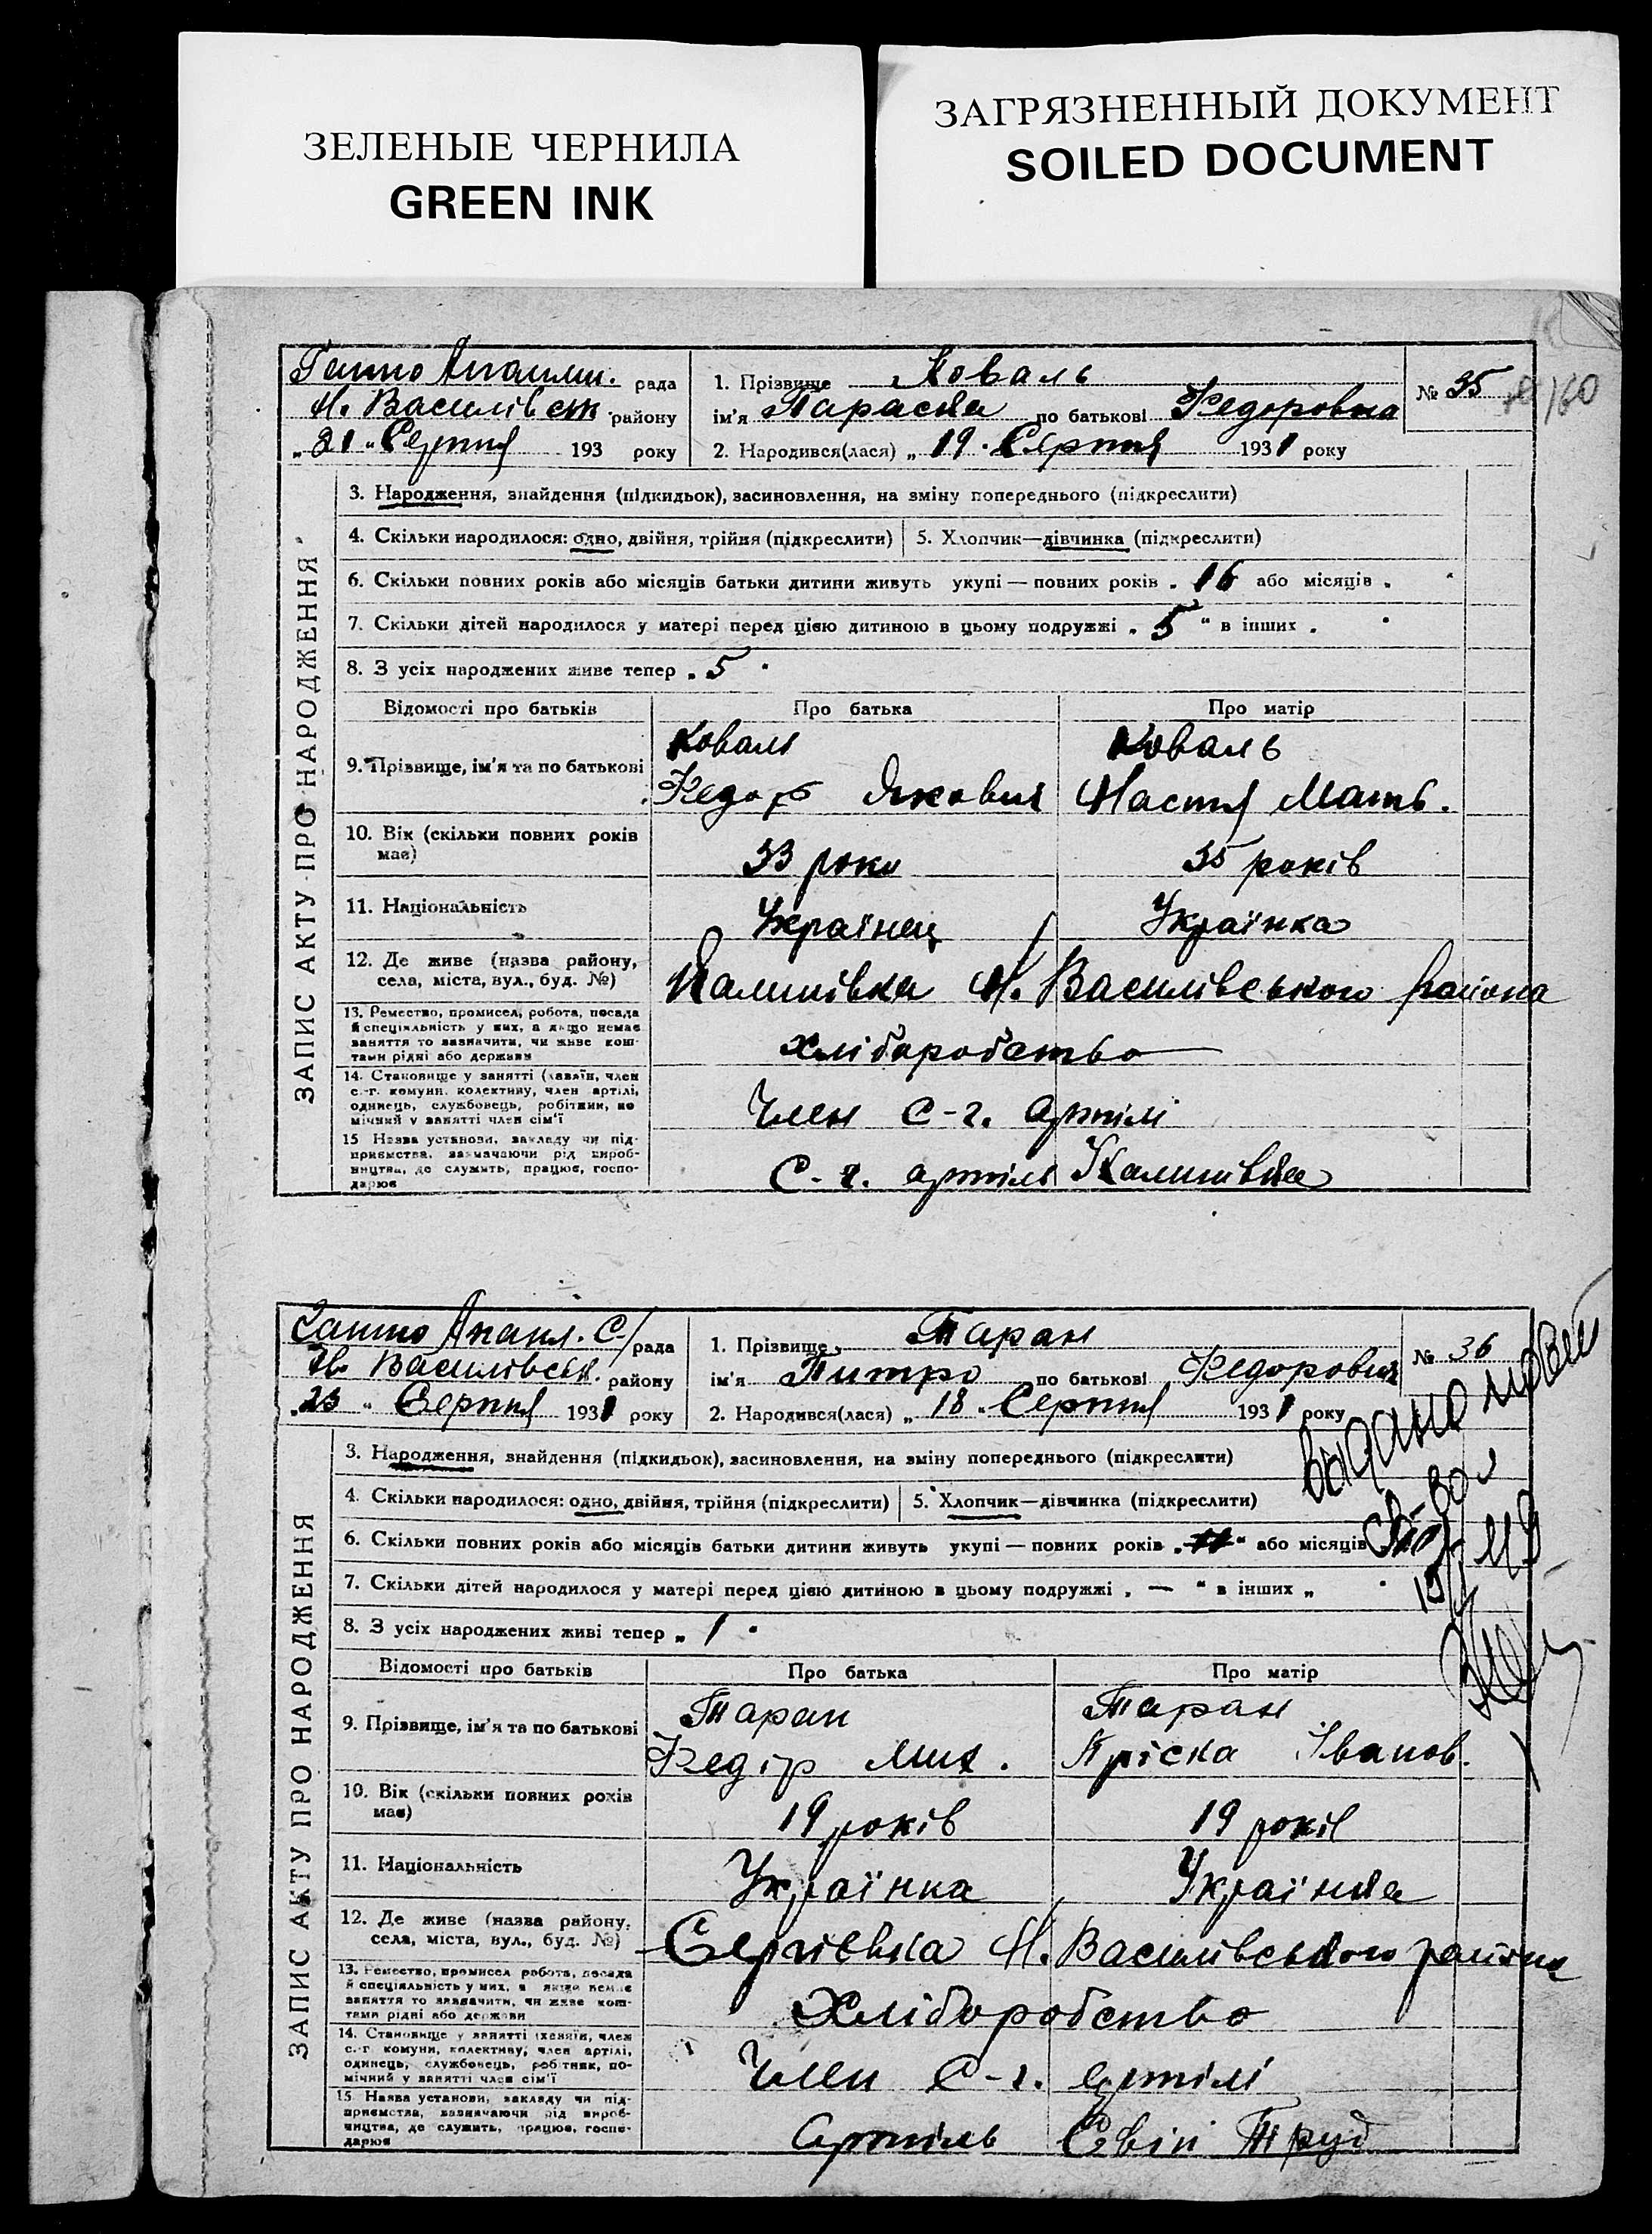 ЗЕЛЕНЫЕ ЧЕРНИЛА
GREEN INK
ЗАГРЯЗНЕННЫЙ ДОКУМЕНТ
SOILED DOCUMENT
рада
Н. Василівськ. району
„21 „ Серпня 193 року
1. Прізвище Коваль
ім'я Параска по батькові Федоровна
2. Народився(лася) „ 19 . Серпня 1931 року
№ 35
160
ЗАПИС АКТУ ПРО НАРОДЖЕННЯ
3. Народження, знайдення (підкидьок), засиновлення, на зміну попереднього (підкреслити)
4. Скільки народилося: одно, двійня, трійня (підкреслити) 5. Хлопчик—дівчинка (підкреслити)
6. Скільки повних років або місяців батьки дитини живуть укупі — повних років „ 16 або місяців „
7. Скільки дітей народилося у матері перед цією дитиною в цьому подружжі „ 5 “ в інших „
8. З усіх народжених живе тепер „ 5
Відомості про батьків Про батька Про матір
Коваль Коваль
9. Прізвище, ім'я та по батькові
Федор Якович Настя Матв.
10. Вік (скільки повних років
має) 33 роки 35 років
11. Національність Українец Українка
12. Де живе (назва району,
села, міста, вул., буд. №) Калинівка Н. Василівського района
13. Ремество, промисел, робота, посада
й спеціяльність у них, а якщо немає
заняття то зазначити, чи живе кош-
тами рідні або держави
хліборобство
14. Становище у занятті (хазяїн, член
с.-г. комуни, колективу, член артілі,
одинець, службовець, робітник, по
мічний у занятті член сім'ї
Член С-г. артілі
15 Назва установи, закладу чи під-
приємства, зазначаючи рід вироб-
ництва, де служить, працює, госпо-
дарює
С.-г. артіль Калинівка
рада
Нв Василівськ. району
„23 „ Серпня 1931 року
1. Прізвище Таран
ім'я Питро по батькові Федорович
2. Народився(лася) „ 18 „ Серпня 1931 року
№ 36
ЗАПИС АКТУ ПРО НАРОДЖЕННЯ
3. Народження, знайдення (підкидьок), засиновлення, на зміну попереднього (підкреслити)
4. Скільки народилося: одно, двійня, трійня (підкреслити) 5. Хлопчик—дівчинка (підкреслити)
6. Скільки повних років або місяців батьки дитини живуть укупі — повних років „ “ або місяців
7. Скільки дітей народилося у матері перед цією дитиною в цьому подружжі „ — “ в інших „
8. З усіх народжених живі тепер „ 1
Відомості про батьків Про батька Про матір
Таран Таран
9. Прізвище, ім'я та по батькові
Федір Мих. Пріска Іванов.
10. Вік (скільки повних років
має) 19 років 19 років
11. Національність Українка Українка
12. Де живе (назва району,
села, міста, вул., буд. №) Сергіївка Н. Василівського района
13. Ремество, промисел робота, посада
й спеціяльність у них, а якщо немає
заняття то зазначити, чи живе кош-
тами рідні або держави
Хліборобство
14. Становище у занятті (хазяїн, член
с.-г комуни, колективу, член артілі,
одинець, службовець, робітник, по-
мічний у занятті член сім'ї
Член С-г. артілі
15. Назва установи, закладу чи під-
приємства, зазначаючи рід вироб-
ництва, де служить, працює, госпо-
дарює
Артіль Свій Труд